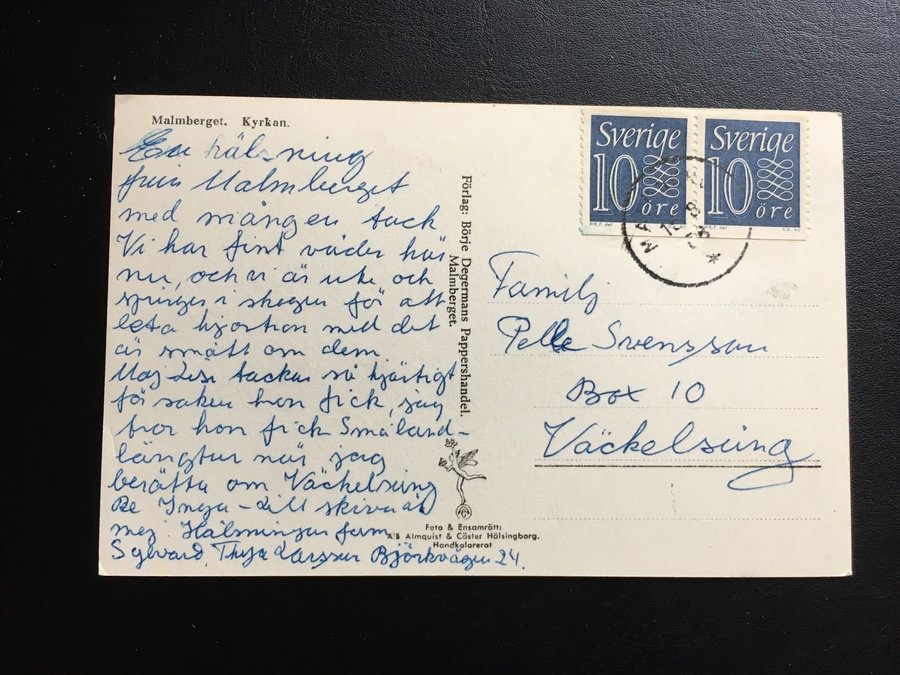 Malmberget. Kyrkan.
En hälsning
från Malmberget
med mången tack
Vi har fint väder här
nu, och vi är ute och
springer i skogen för att
leta hjortron med det
är smått om dem.
Maj Lise tackar så hjärtigt
för saken hon fick, jag
tror hon fick Småland-
längtur när jag
berätta om Väckelsång
Be Inga-Lill skiva åt
mej. Hälsningar fam
Sylvard, Larsson Björkvägen 24.
Förlag: Börje Degermans Pappershandel.
Malmberget.
Foto & Ensamrätt:
A/B Almquist & Cöster Hälsingborg.
Handkolorerat
Sverige
10
öre
Sverige
10
öre
Familj
Pelle Svensson
Box 10
Väckelsång